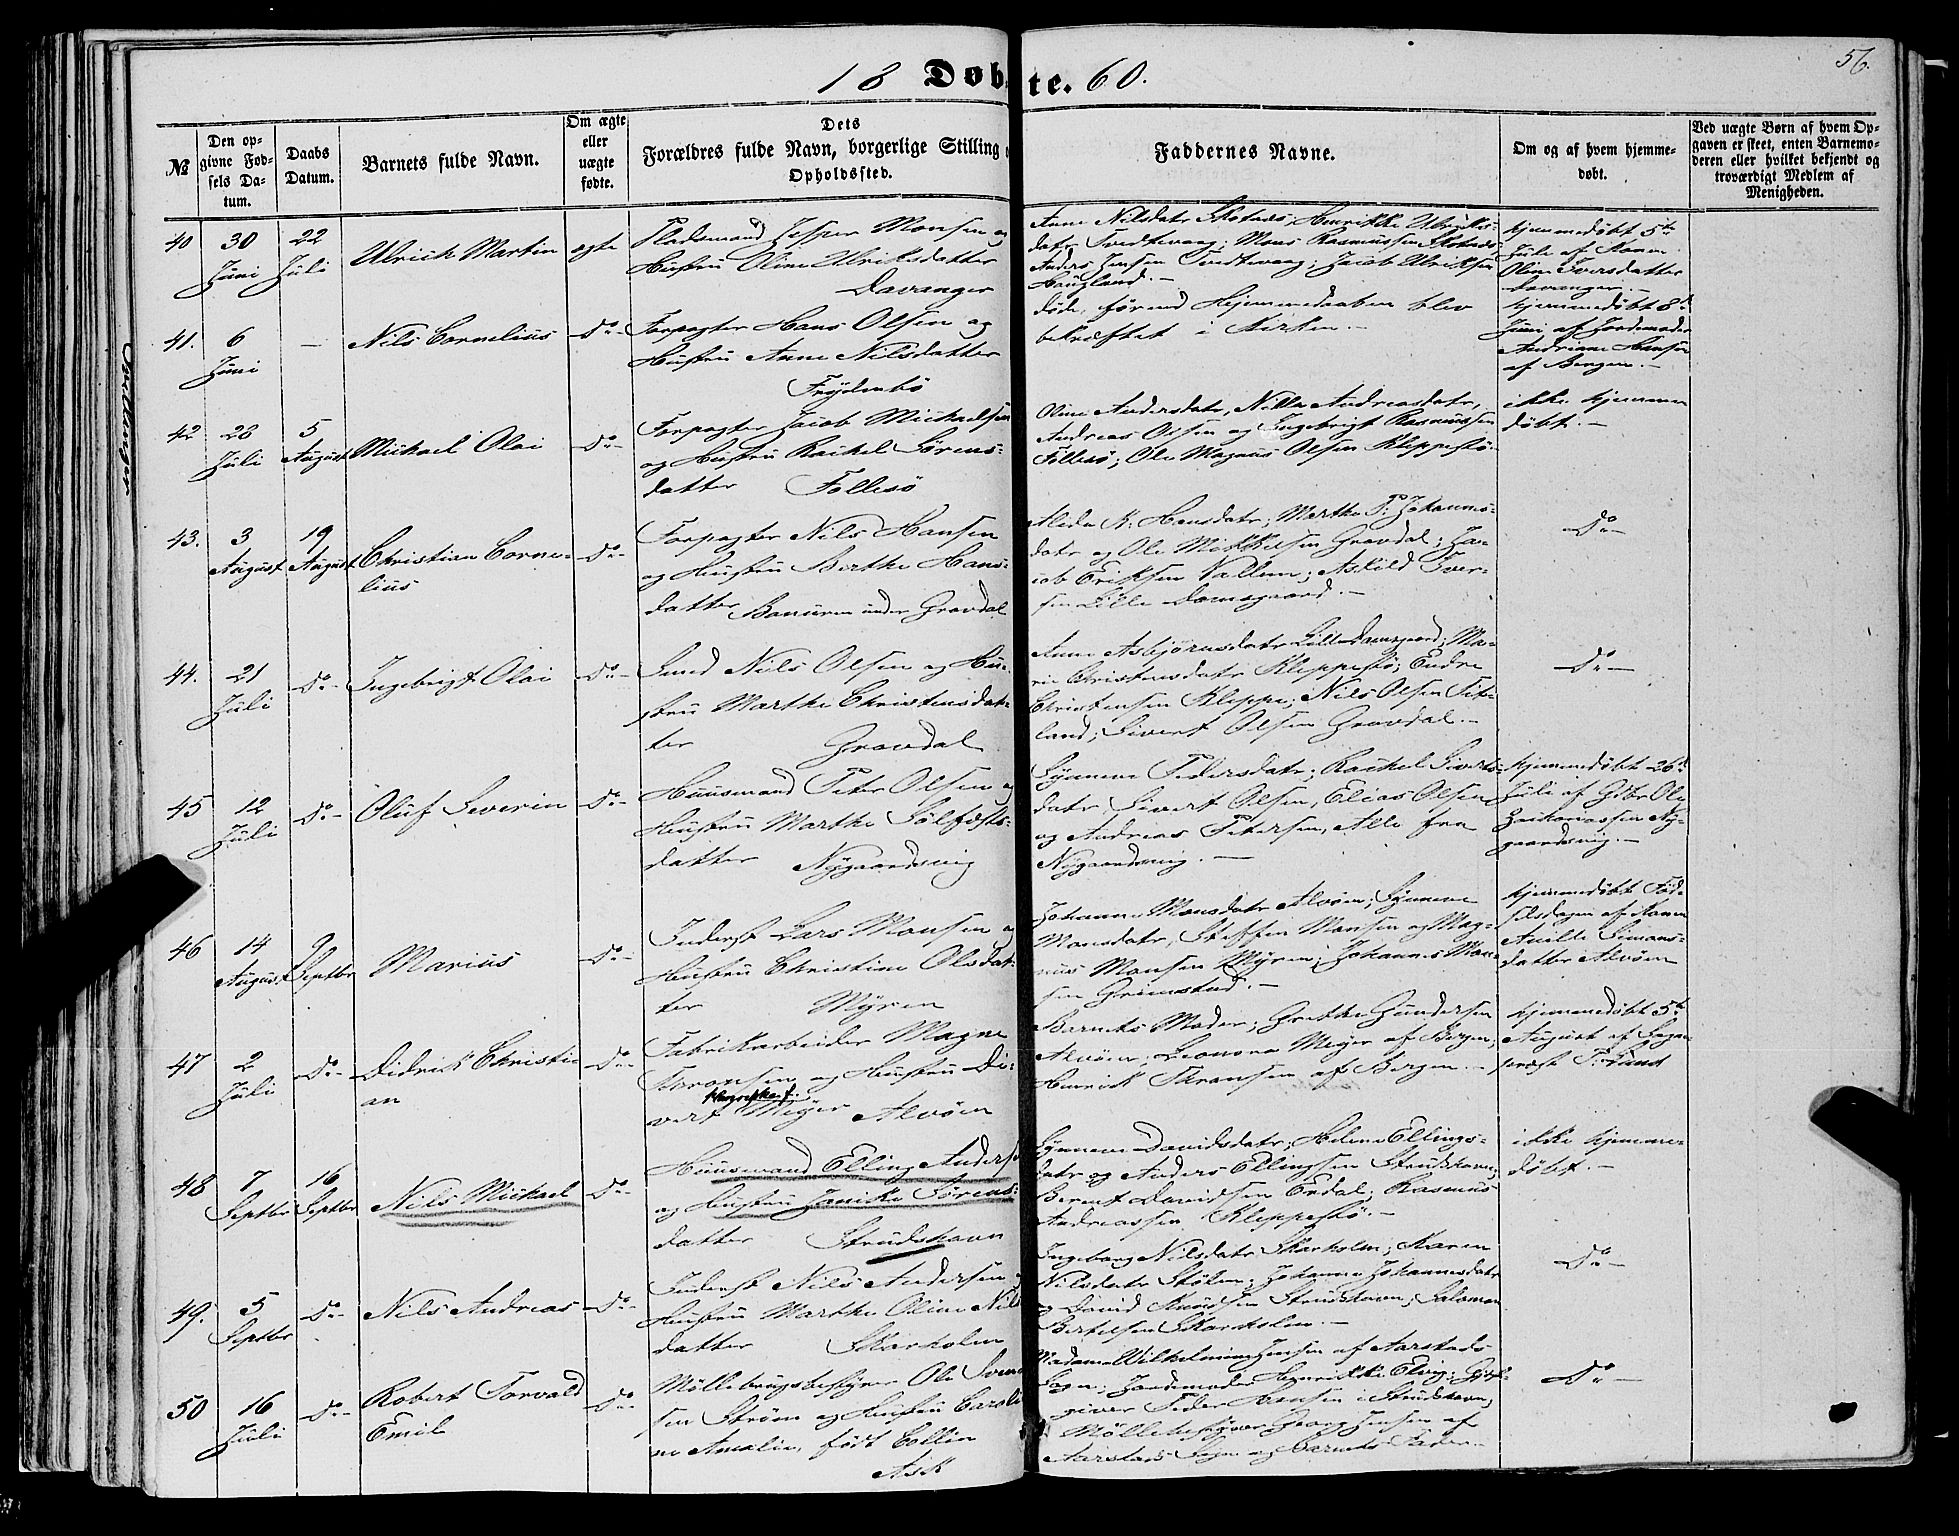 56.
18 Døbte. 60.
№
Den opgivne Fødsels Datum.
Daabs Datum.
Barnets fulde Navn.
Om ægte eller uægte fødte.
Dets Forældres fulde Navn, borgerlige Stilling o
Opholdssted.
Faddernes Navne.
Om og af hvem hjemmedøbt.
Ved uægte Børn af hvem Opgaven er skeet, enten Barnemoderen eller hvilket bekjendt og troværdigt Medlem af Menigheden.
40
30 Juni
22 Juli
Ulrich Martin
ægte
Pladsmand Jesper Monsen og
Hustru Oline Ulriksdatter
Davanger
Anne Nilsdatr Skotnes; Henrikke Ulriks-
datr Tvedtevaag; Mons Rasmussen Skotnes
Anders Jensen Tvedtevaag; Jacob Ulriksen
Haugland.-
hjemmedøbt 5te
Juli af Konen
Oline Iversdatter
Davanger.-
41.
6 Juni
-
Nils Cornelius
Do-
Forpagter Hans Olsen og
Hustru Anne Nilsdatter
Frydenbø
døde, førend Hjemmedaaben blev
bekræftet i Kirken.-
hjemmedøbt 8de
Juni af Jordemoder
Andriane Hansen
af Bergen.-
42
28 Juli
5 August
Michael Olai
Do-
Forpagter Jacob Michaelsen
og Hustru Rachel Sørens-
datter Follesø
Oline Andersdatr, Nille Andreasdatr,
Andreas Olsen og Ingebrigt Rasmussen
Follesø; Ole Magnus Olsen Kleppestø.
ikke hjemme
døbt.-
43.
3 August
19 August
Christian Corne-
lius
Do-
Forpagter Nils Hansen
og Hustru Berthe Hans-
datter Banuren under Gravdal
Aleda N. Hansdatr; Marthe P. Johanns-
datr og Ole Mikkelsen Gravdal; Ja-
cob Eriksen Vallem; Askild Iver-
sen Lille Damsgaard.-
Do-
44.
21 Juli
Do-
Ingebrigt Olai
Do-
Smed Nils Olsen og Hu-
stru Marthe Christensdat-
ter Gravdal
Anne Asbjørnsdatr Lille Damsgaard; Ma-
rie Christensdatr Kleppestø; Endre
Christensen Kleppe; Nils Olsen
land; Sivert Olsen Gravdal.-
Do-
45
12 Juli
Do-
Oluf Severin
Do-
Huusmand Peter Olsen og
Hustru Marthe Sølfæsts-
datter Nygaardsvig
Synneve Pedersdatr; Rachel Siverts-
datr, Sivert Olsen, Elias Olsen
og Andreas Petersen, Alle fra
Nygaardsvig.-
hjemmedøbt 26de
Juli af Gbr Ole
Zachariassen Ny-
gaardsvig.-
46
14 August
9 Septbr
Marius
Do-
Inderst Lars Monsen og
Hustru Christine Olsdat-
ter Myren
Johanne Monsdatr Alvøen; Synneve
Monsdatr, Steffen Monsen og Mag-
nus Monsen Myren; Johannes Mon-
sen Grimstad.-
hjemmedøbt Fød-
selsdagen af Konen
Anille Simons-
datter Alvøen
47
2 Juli
Do-
Didrick Christi-
an
Do-
Fabrikarbeider Magne
Thronsen og Hustru Di-
vert Meyer Alvøen
Barnets Moder; Grethe Gundersen
Alvøen; Leonora Meyer af Bergen;
Henrick Thronsen af Bergen.-
hjemmedøbt 5te
August af Sogne-
præst
48
7 Septbr
16 Septbr
Nils Michael
Do-
Huusmand Elling Anders
og Hustru Janike Sørens-
datter Strudshavn
Synneve Davidsdatr; Helene Ellings-
datr og Anders Ellingsen Strudshavn;
Berent Davidsen Erdal; Rasmus
Andreassen Kleppestø.-
ikke hjemme-
døbt.-
49.
5 Septbr
Do-
Nils Andreas
Do-
Inderst Nils Andersen og
Hustru Marthe Oline Nils
datter Skarholm
Ingeborg Nilsdatr Skarholm; Karen
Nilsdatr Stølen; Johanne Johannesdatr
og David Knudsen Strudshavn; Salamon
Bertelsen Skarholm.-
Do-
50
16 Juli
Do-
Robert Torvald
Emil
Do-
Møllebrugsbestyrer Ole Svend
sen Strøm og Hustru Caroli
ne Amalie, født Collin
Ask
Madame Wilhelmine Jensen af Aarstads
Sogn; Jordemoder Henrikke Eling; Gjest-
giver Peder Hansen i Strudshavn;
Møllebestyrer Georg Jensen af
Aarstads Sogn og Barnets Fader.-
Do-